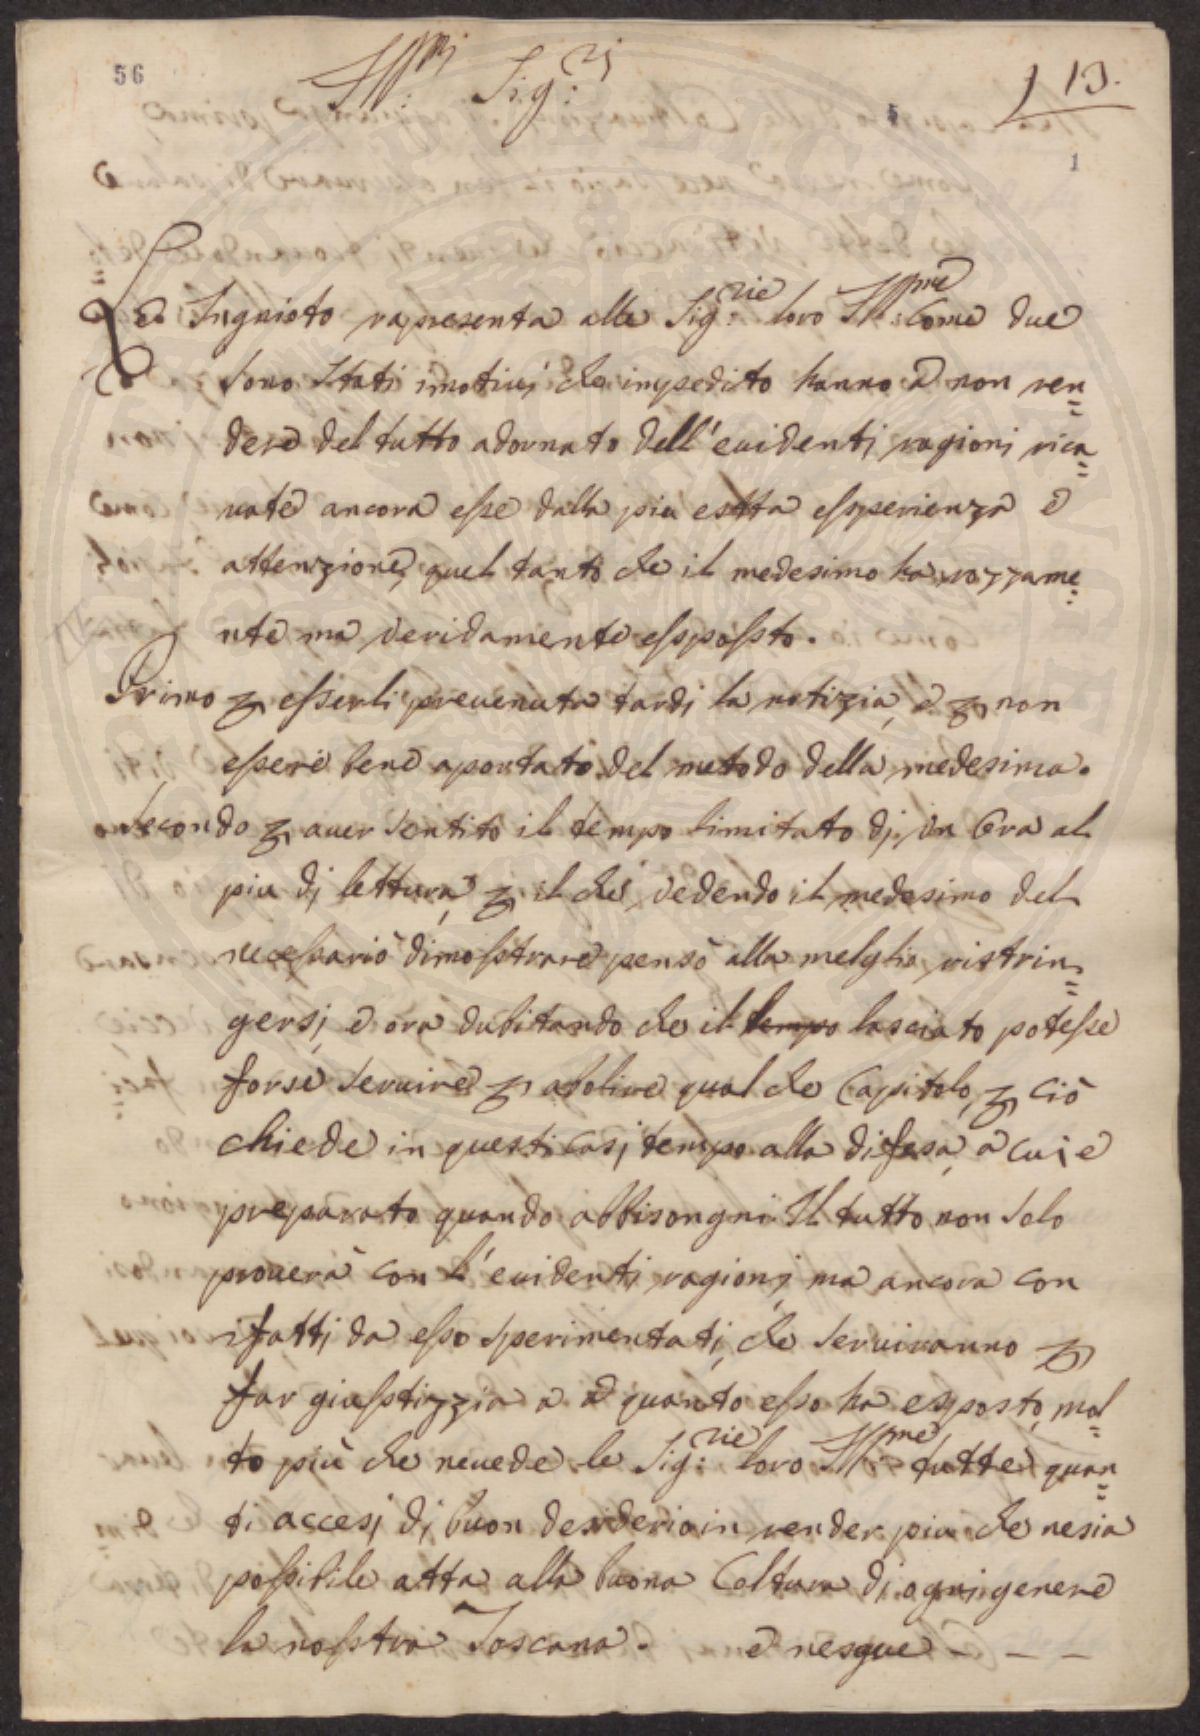 56
Ill:mi Sig:ri
13.
1
Lo Ingnioto rapresenta alle Sig:rie loro Ill:me Come due
sono stati i motivi che inpedito hanno à non ren=
dere del tutto adornato dell'evidenti ragioni rica=
vate ancora esse dalla piu esatta essperienza e
attenzione, quel tanto che il medesimo ha rozzame=
nte ma veridamente essposto.
Primo p esserli prevenuta tardi la notizia, e p non
essere bene aportato del metodo della medesima.
Secondo p aver sentito il tempo limitato di un Ora al
piu di lettura, p il che vedendo il medesimo del
necessario dimosstrare pensò alla melglio ristrin=
gersi, e ora dubitando che il tempo lasciato potesse
forse servire p abolire qual che Capitolo, p ciò
chiede in questi casi tempo alla difesa, a cui e
preparato quando abbisongni. Il tutto non solo
proverà con l'evidenti ragioni, ma ancora con
i fatti da esso sperimentati, che serviranno p
far giusstizzia a quanto esso ha esposto, mol=
to più che nevede le Sig:rie loro Ill:me tutte quan=
ti accesi di buon desiderio in render piu che nesia
possibile atta alla buona Coltura di ogni genere
la nosstra Toscana. e nesgue - - -